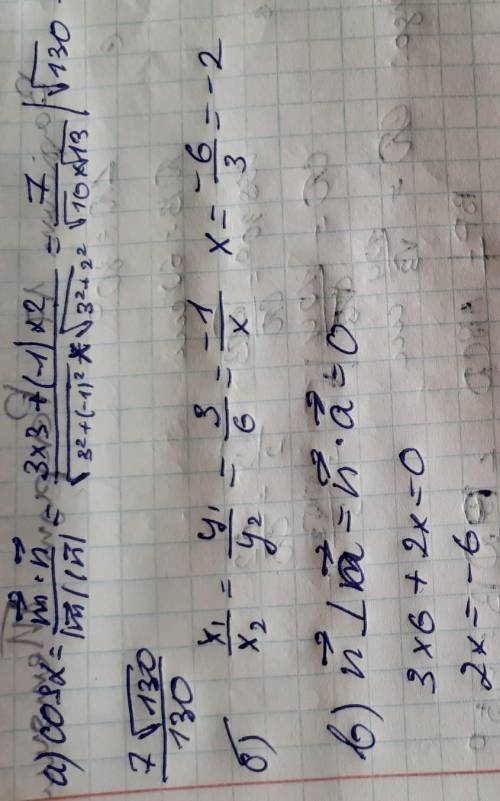 а) cosx = m⃗ · n⃗ / |m⃗| |n⃗| = 3×3 + (-1)×2 / √3² + (-1)² × √3² + 2² = 7 / √10 × √13 | √130
7√130 / 130
б) x₁ / x₂ = y₁ / y₂ = 3 / 6 = -1 / x x = -6 / 3 = -2
в) n⃗ ⊥ a⃗ = n⃗ · a⃗ = 0
3×6 + 2x = 0
2x = -6